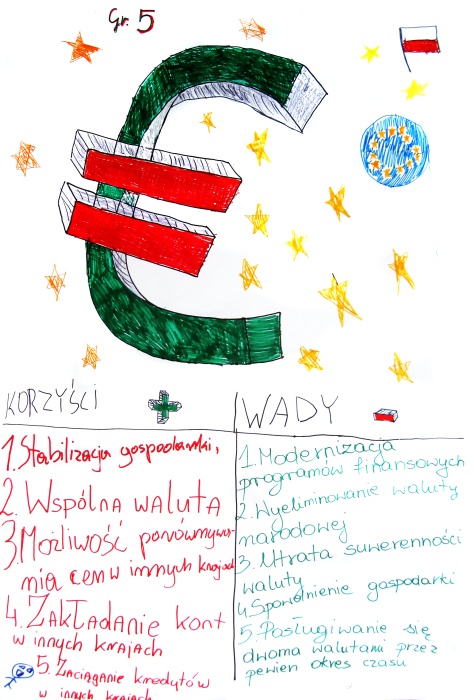 Gr. 5
KORZYŚCI
1. Stabilizacja gospodarki,
2. WSPÓLNA WALUTA
3 Możliwość porównywa-
nia cen w innych krajach
4. ZAKŁADANIE KONT
w innych KRAJACH
5. ZACIĄGANIE KREDYTÓW
w innych krajach
WADY
1. Modernizacja
programów finansowych
2. Wyeliminowanie waluty
narodowej
3. Utrata suwerenności
waluty
4. Spowolnienie gospodarki
5. Posługiwanie się
dwoma walutami przez
pewien okres czasu